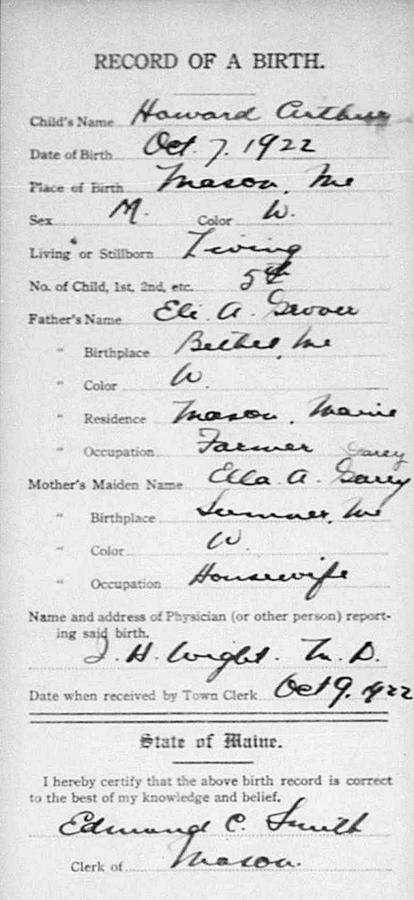 RECORD OF A BIRTH.
Child's Name Howard Arthur
Date of Birth Oct. 7. 1922
Place of Birth Mason, Me
Sex M. Color W.
Living or Stillborn Living
No. of Child, 1st, 2nd, etc. 5th
Father's Name Eli A. Grover
" Birthplace Bethel, Me
" Color W.
" Residence Mason, Maine
" Occupation Farmer
Garey
Mother's Maiden Name Ella A. Garey
" Birthplace Sumner, Me
" Color W
" Occupation Housewife
Name and address of Physician (or other person) report-
ing said birth.
I. H. Wight. M. D.
Date when received by Town Clerk Oct 9. 1922
State of Maine.
I hereby certify that the above birth record is correct
to the best of my knowledge and belief.
Edmund C. Smith
Clerk of Mason.